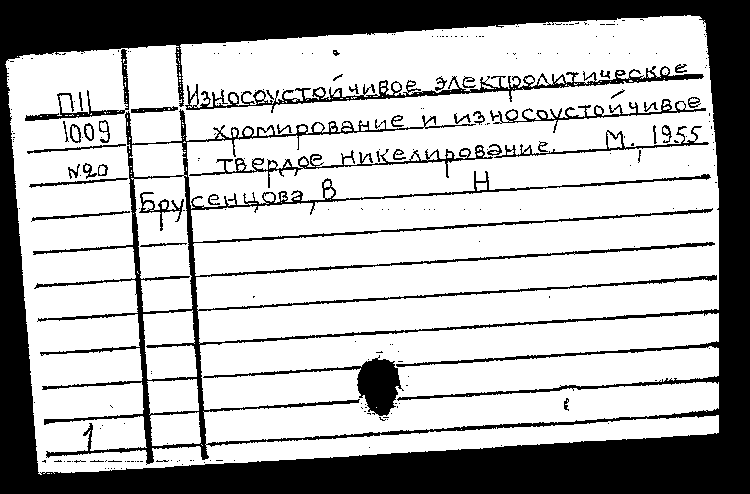 П11 Износоустойчивое электролитическое
1009 хромирование и износоустойчивое
№20 твердое никелирование. М., 1955
Брусенцова, В Н
1